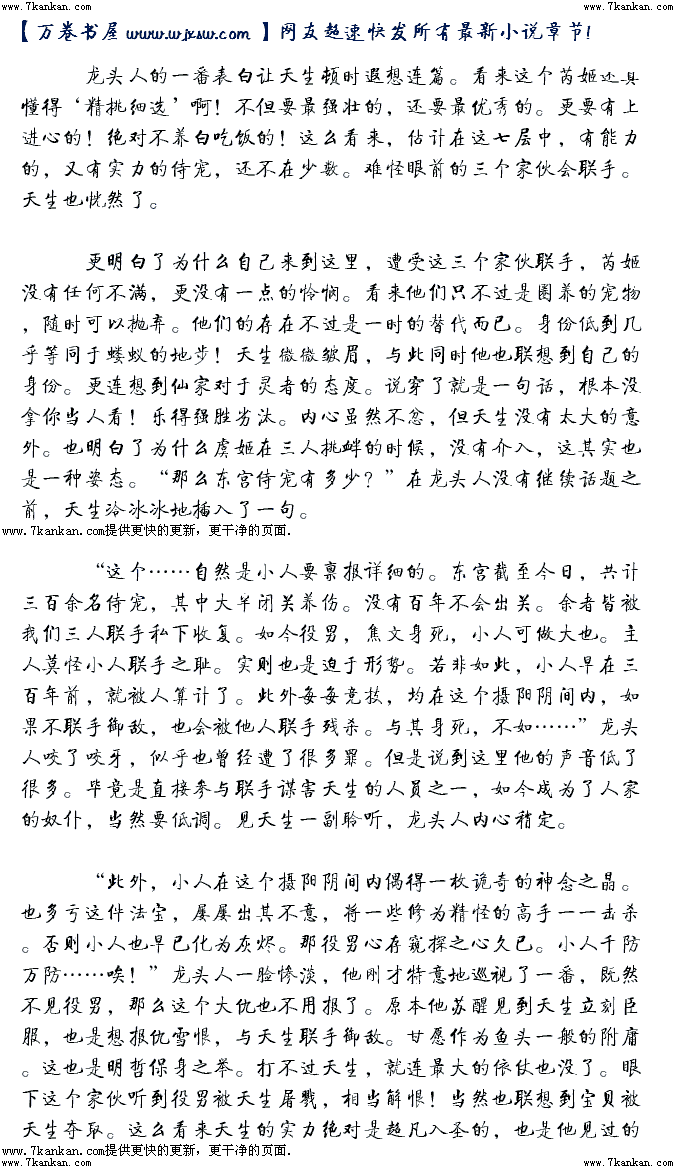 www.7kankan.com www.7kankan.com
【万卷书屋 www.wjxsw.com 】网友超速快发所有最新小说章节!
龙头人的一番表白让天生顿时遐想连篇。看来这个芮姬还具
懂得‘精挑细选’啊！不但要最强壮的，还要最优秀的。更要有上
进心的！绝对不养白吃饭的！这么看来，估计在这七层中，有能力
的，又有实力的侍宠，还不在少数。难怪眼前的三个家伙会联手。
天生也恍然了。
更明白了为什么自己来到这里，遭受这三个家伙联手，芮姬
没有任何不满，更没有一点的怜悯。看来他们只不过是圈养的宠物
，随时可以抛弃。他们的存在不过是一时的替代而已。身份低到几
乎等同于蝼蚁的地步！天生微微皱眉，与此同时他也联想到自己的
身份。更连想到仙家对于灵者的态度。说穿了就是一句话，根本没
拿你当人看！乐得强胜劣汰。内心虽然不忿，但天生没有太大的意
外。也明白了为什么虞姬在三人挑衅的时候，没有介入，这其实也
是一种姿态。“那么东宫侍宠有多少？”在龙头人没有继续话题之
前，天生冷冰冰地插入了一句。
www.7kankan.com提供更快的更新，更干净的页面.
“这个……自然是小人要禀报详细的。东宫截至今日，共计
三百余名侍宠，其中大半闭关养伤。没有百年不会出关。余者皆被
我们三人联手私下收复。如今役男，焦文身死，小人可做大也。主
人莫怪小人联手之耻。实则也是迫于形势。若非如此，小人早在三
百年前，就被人算计了。此外每每竞技，均在这个摄阳阴间内，如
果不联手御敌，也会被他人联手残杀。与其身死，不如……”龙头
人咬了咬牙，似乎也曾经遭了很多罪。但是说到这里他的声音低了
很多。毕竟是直接参与联手谋害天生的人员之一，如今成为了人家
的奴仆，当然要低调。见天生一副聆听，龙头人内心稍定。
“此外，小人在这个摄阳阴间内偶得一枚诡奇的神念之晶。
也多亏这件法宝，屡屡出其不意，将一些修为精怪的高手一一击杀
。否则小人也早已化为灰烬。那役男心存窥探之心久已。小人千防
万防……唉！”龙头人一脸惨淡，他刚才特意地巡视了一番，既然
不见役男，那么这个大仇也不用报了。原本他苏醒见到天生立刻臣
服，也是想报仇雪恨，与天生联手御敌。甘愿作为鱼头一般的附庸
。这也是明哲保身之举。打不过天生，就连最大的依仗也没了。眼
下这个家伙听到役男被天生屠戮，相当解恨！当然也联想到宝贝被
天生夺取。这么看来天生的实力绝对是超凡入圣的，也是他见过的
www.7kankan.com提供更快的更新，更干净的页面.
www.7kankan.com www.7kankan.com